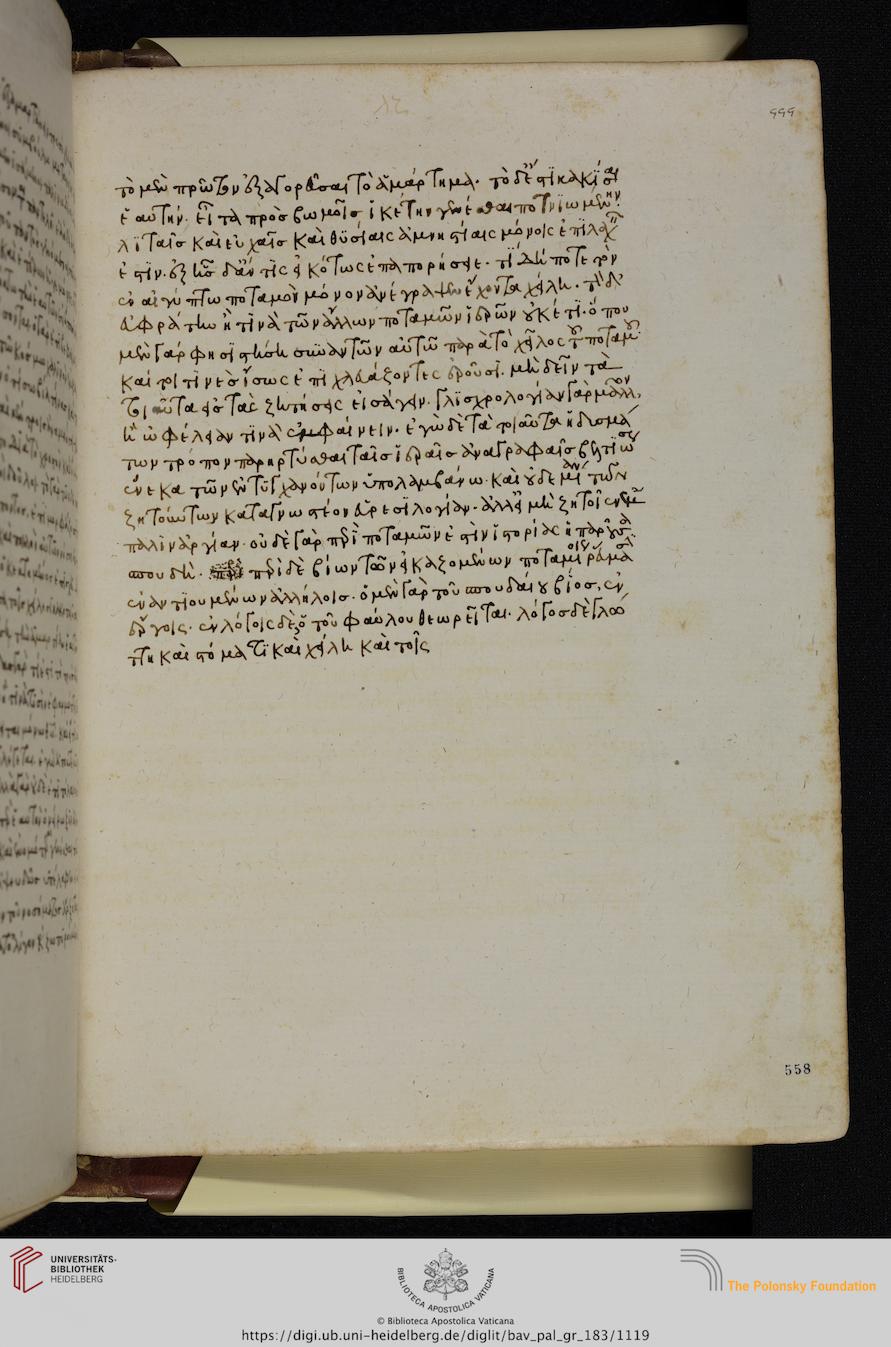 τὸ μὲν πρῶτον ἐξαγορεῦσαι τὸ ἁμάρτημα· τὸ δέ ἐστι κακίσαι
ἑαυτήν. εἶτα πρὸς βωμοῖς ἱκέτην γενέσθαι ποτνιωμένην.
λιταῖς καὶ εὐχαῖς καὶ θυσίαις ἀμνηστίαις μόνοις ἐπιλαχεῖν
ἐστιν. ἑξῆς δ' ἄν τις εἰκότως ἐπαπορήσειε. τί δή ποτε τὸν
ἐν αἰγύπτω ποταμὸν μόνον ἀνέγραψεν ἔχοντα χείλη. τὸν δ'
εὐφράτην ἢ τινὰ τῶν ἄλλων ποταμῶν ἱερῶν οὐκέτι. ὅπου
μὲν γάρ φησι στήση συναντῶν αὐτῶ παρὰ τὸ χεῖλος τοῦ ποταμοῦ.
καί τοι τινὲς ἴσως ἐπιχλευάζοντες ἐροῦσι. μὴ δεῖν τὰ
τοιαῦτα εἰς τὰς ζητήσεις εἰσάγειν. γλισχρολογίαν γὰρ μᾶλλον,
ἢ ὠφέλειαν τινὰ ἐμφαίνειν. ἐγὼ δὲ τὰ τοιαῦτα ἡδυσμά
των τρόπον παρηρτύσθαι ταῖς ἱεραῖς ἀναγραφαῖς βελτιώσεως
ἕνεκα τῶν ἐντυγχανόντων ὑπολαμβάνω. καὶ οὐδεμίαν τῶν
ζητούντων καταγνωστέον εὑρεσιλογίαν. ἀλλ' εἰ μὴ ζητοῖεν ἔμ
παλιν ἀργίαν. οὐδὲ γὰρ περὶ ποταμῶν ἐστὶν ἱστορίας ἡ παροῦσα
σπουδή. περὶ δὲ βίων τῶν εἰκαζομένων ποταμίοις ῥεύμασιν
ἐναντιουμένων ἀλλήλοις. ὁ μὲν γὰρ τοῦ σπουδαίου βίος, ἐν
ἔργοις. ἐν λόγοις δὲ ὁ τοῦ φαύλου θεωρεῖται. λόγος δὲ γλώ
ττη καὶ στόματι καὶ χείλη καὶ τοῖς
558
UNIVERSITÄTS-
BIBLIOTHEK
HEIDELBERG
BIBLIOTECA APOSTOLICA VATICANA
The Polonsky Foundation
© Biblioteca Apostolica Vaticana
https://digi.ub.uni-heidelberg.de/diglit/bav_pal_gr_183/1119